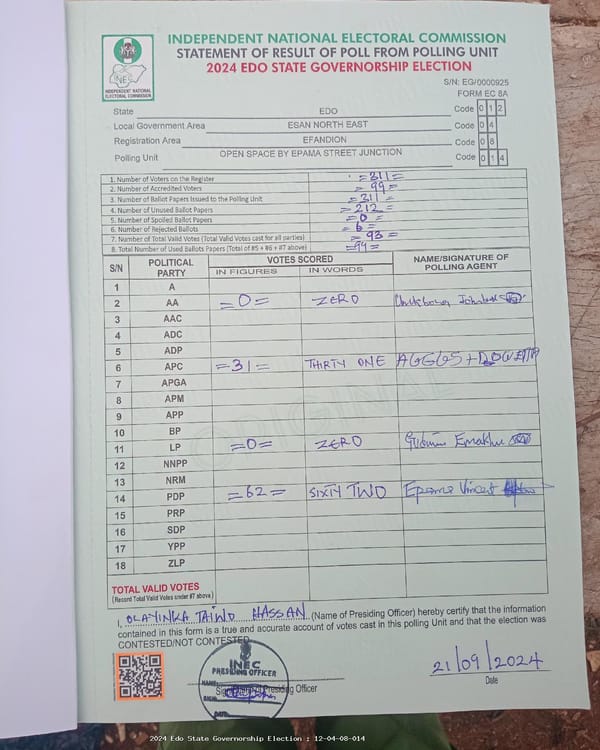 INDEPENDENT NATIONAL ELECTORAL COMMISSION
STATEMENT OF RESULT OF POLL FROM POLLING UNIT
2024 EDO STATE GOVERNORSHIP ELECTION
INEC
INDEPENDENT NATIONAL ELECTORAL COMMISSION
S/N: EG/0000925
FORM EC 8A
State EDO Code 0 1 2
Local Government Area ESAN NORTH EAST Code 0 4
Registration Area EFANDION Code 0 8
Polling Unit OPEN SPACE BY EPAMA STREET JUNCTION Code 0 1 4
1. Number of Voters on the Register =311=
2. Number of Accredited Voters =99=
3. Number of Ballot Papers Issued to the Polling Unit =311=
4. Number of Unused Ballot Papers =212=
5. Number of Spoiled Ballot Papers =0=
6. Number of Rejected Ballots =6=
7. Number of Total Valid Votes (Total Valid Votes cast for all parties) =93=
8. Total Number of Used Ballots Papers (Total of #5 + #6 + #7 above) =99=
S/N POLITICAL PARTY VOTES SCORED NAME/SIGNATURE OF POLLING AGENT
IN FIGURES IN WORDS
1 A
2 AA =0= ZERO
3 AAC
4 ADC
5 ADP
6 APC =31= THIRTY ONE
7 APGA
8 APM
9 APP
10 BP
11 LP =0= ZERO
12 NNPP
13 NRM
14 PDP =62= SIXTY TWO Epama Vincent
15 PRP
16 SDP
17 YPP
18 ZLP
ORIGINAL
TOTAL VALID VOTES
(Record Total Valid Votes under #7 above)
I, OLAYINKA TAIWO HASSAN (Name of Presiding Officer) hereby certify that the information
contained in this form is a true and accurate account of votes cast in this polling Unit and that the election was
CONTESTED/NOT CONTESTED
INEC
PRESIDING OFFICER
NAME:
SIGN:
DATE:
Presiding Officer
21/09/2024
Date
2024 Edo State Governorship Election : 12-04-08-014